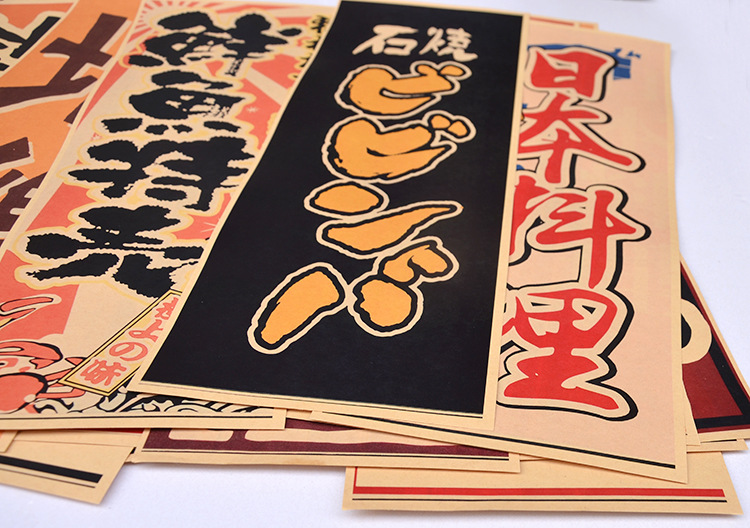 日本料理
石焼
ビビンバ
鮮魚特売
上の味